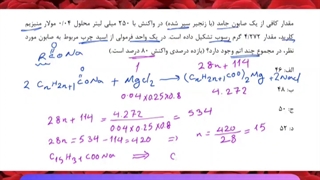 مقدار کافی از یک صابون جامد (با زنجیر سیر شده) در واکنش با ۲۵۰ میلی لیتر محلول ۰/۰۴ مولار منیزیم
کلرید، مقدار ۴/۲۷۲ گرم رسوب تشکیل داده است. در یک واحد فرمولی از اسید چرب مربوط به صابون مورد
نظر، در مجموع چند اتم وجود دارد؟ (بازده درصدی واکنش ۸۰ درصد است.)
RCONa
الف: ۴۶
28n + 114
2 CnH2n+1COONa + MgCl2 → (CnH2n+1COO)2Mg + 2NaCl
ب: ۴۸
1
0.04×0.25×0.8
4.272
ج: ۵۰
28n + 114 = 4.272 / 0.04×0.25×0.8 = 534
د: ۵۲
28n = 534 - 114 = 420 ⇒ n = 420 / 28 = 15
C15H31COONa ⇒ C